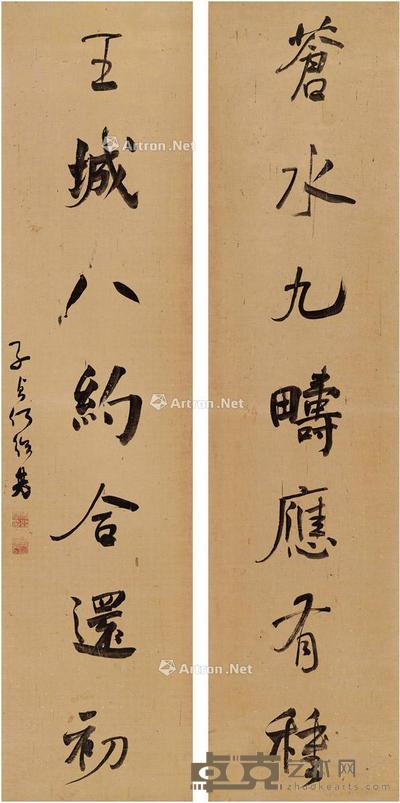 蒼水九疇應有種
王城八約合還初
子貞何紹基
Artron.Net
Artron.Net
Artron.Net
卓克艺术网
zhuokearts.com